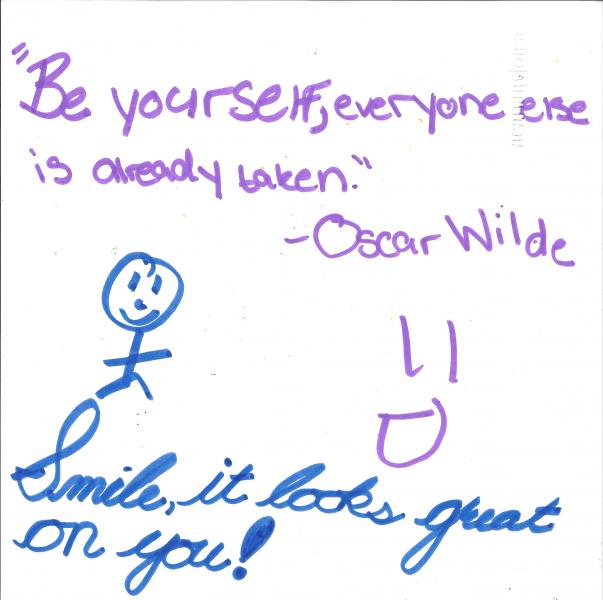 "Be yourself, everyone else
is already taken."
-Oscar Wilde
Smile, it looks great
on you!